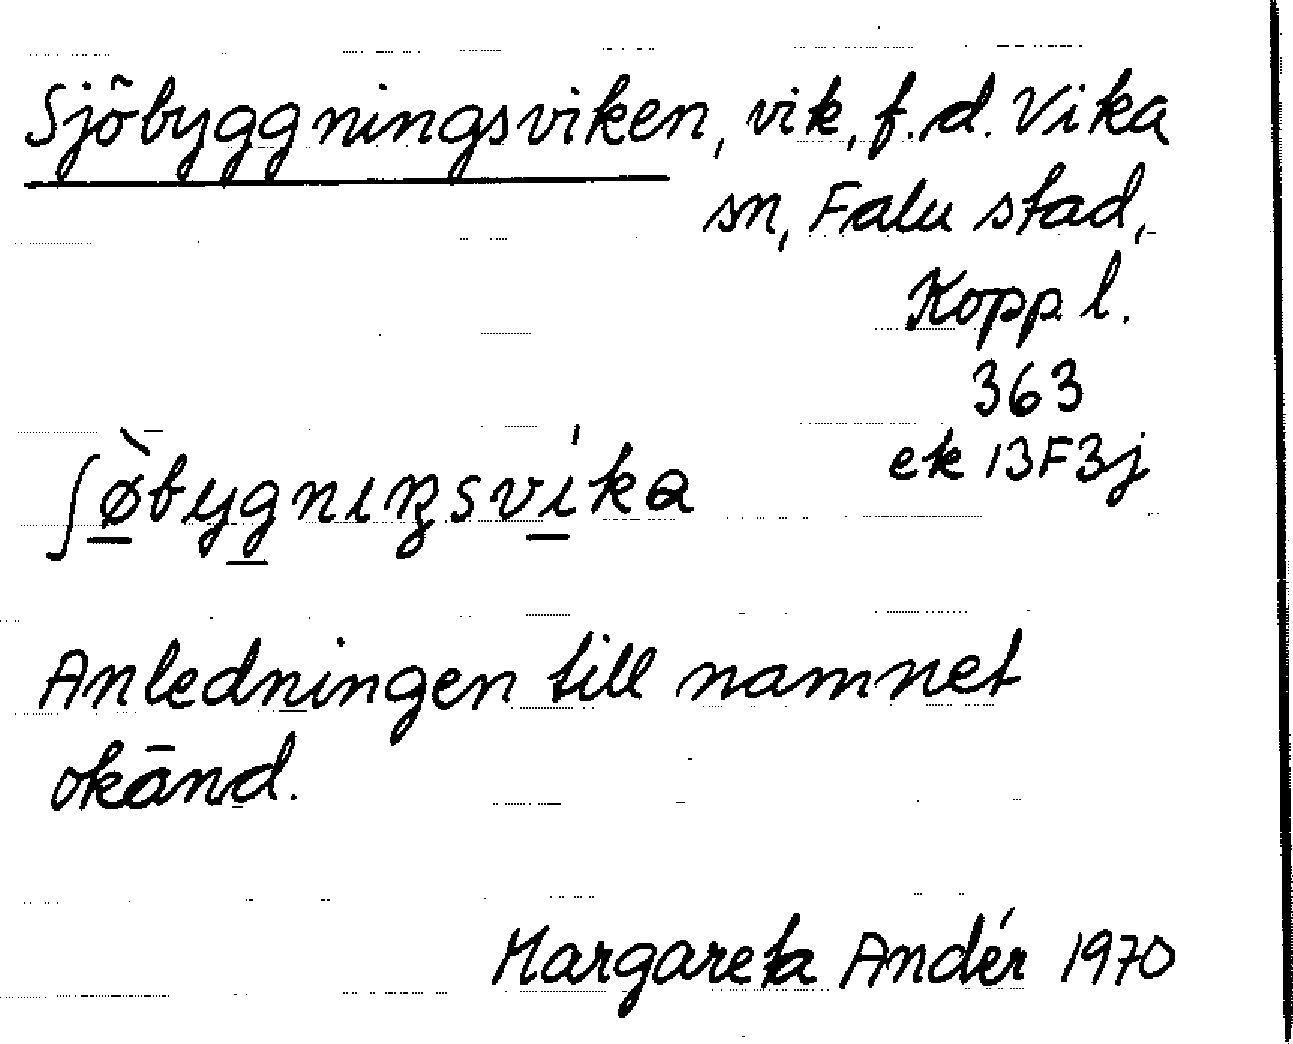 Sjöbyggningsviken, vik, f.d. Vika
sn, Falu stad,
Kopp l.
363
ek 13F3j
ʃø̀bygnıŋsvı̍ka
Anledningen till namnet
okänd.
Margareta Andér 1970